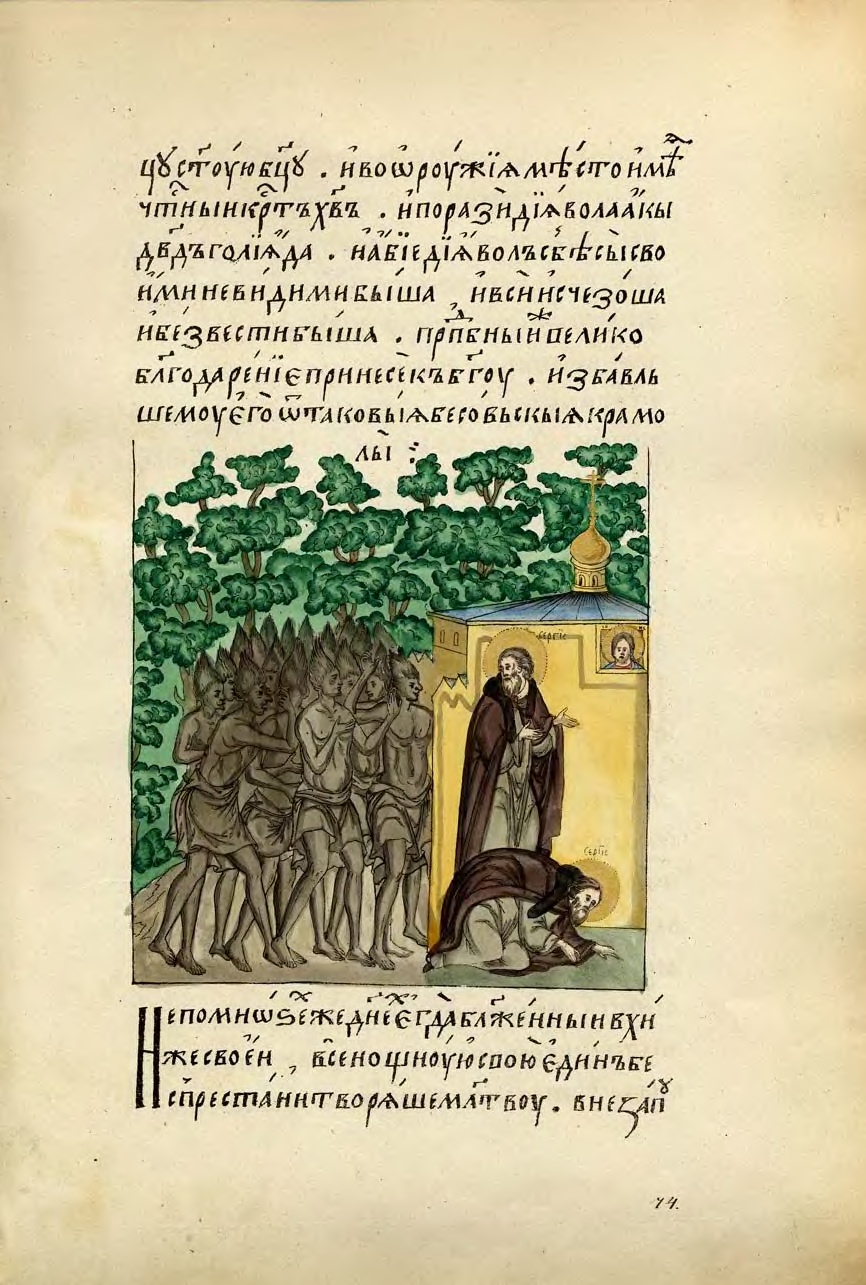 цꙋ ст҃ꙋю бц҃ꙋ . и҆ въ ѡ҆рꙋ́жїѧ мѣ́сто и҆мѣ̀
чтⷭ҇ныи крⷭ҇тъ хв҃ъ . и҆ порази́ дїѧ́вола а҆́кы
дв҃дъ голїѧ́да . и҆ а҆́бїе дїѧ́волъ съ бѣ́сы̀ сво
и́ми неви́дими бы́ша , и҆ вси̂ и҆счезо́ша
и҆ без вести бы́ша . прпⷣбныи же вели́ко
блг҃одаре́нїе принесѐ къ бг҃ꙋ . и҆зба́вль
шемꙋ є҆го̀ ѿ таковы́ѧ бесо́вьскыѧ крамо
лы̀ :
сергїе
сергїе
Не по мно́ѕе же дн҃ехъ є҆гда̀ бл҃же́нныи в хи́
же свое́и , всено́щнꙋю свою̀ є҆ди́нъ бе
спреста́ни творѧ́ше мл҃твꙋ . внеза́пꙋ
74.